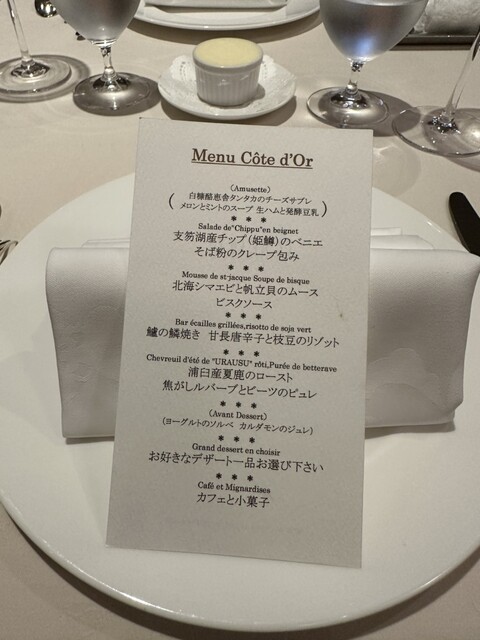 Menu Côte d'Or
(Amusette)
白糠酪恵舎タンタカのチーズサブレ
メロンとミントのスープ 生ハムと発酵豆乳
***
Salade de"Chippu"en beignet
支笏湖産チップ(姫鱒)のベニエ
そば粉のクレープ包み
***
Mousse de st-jacque Soupe de bisque
北海シマエビと帆立貝のムース
ビスクソース
***
Bar écailles grillées,risotto de soja vert
鱸の鱗焼き 甘長唐辛子と枝豆のリゾット
***
Chevreuil d'été de "URAUSU" rôti,Purée de betterave
浦臼産夏鹿のロースト
焦がしルバーブとビーツのピュレ
***
(Avant Dessert)
(ヨーグルトのソルベ カルダモンのジュレ)
***
Grand dessert en choisir
お好きなデザート一品お選び下さい
***
Café et Mignardises
カフェと小菓子